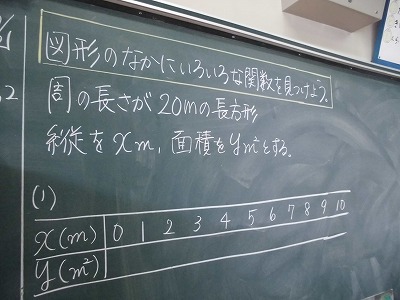 図形のなかにいろいろな関数を見つけよう。
周の長さが20mの長方形
縦をxm, 面積をym²とする。
(1)
x(m) 0 1 2 3 4 5 6 7 8 9 10
y(m²)